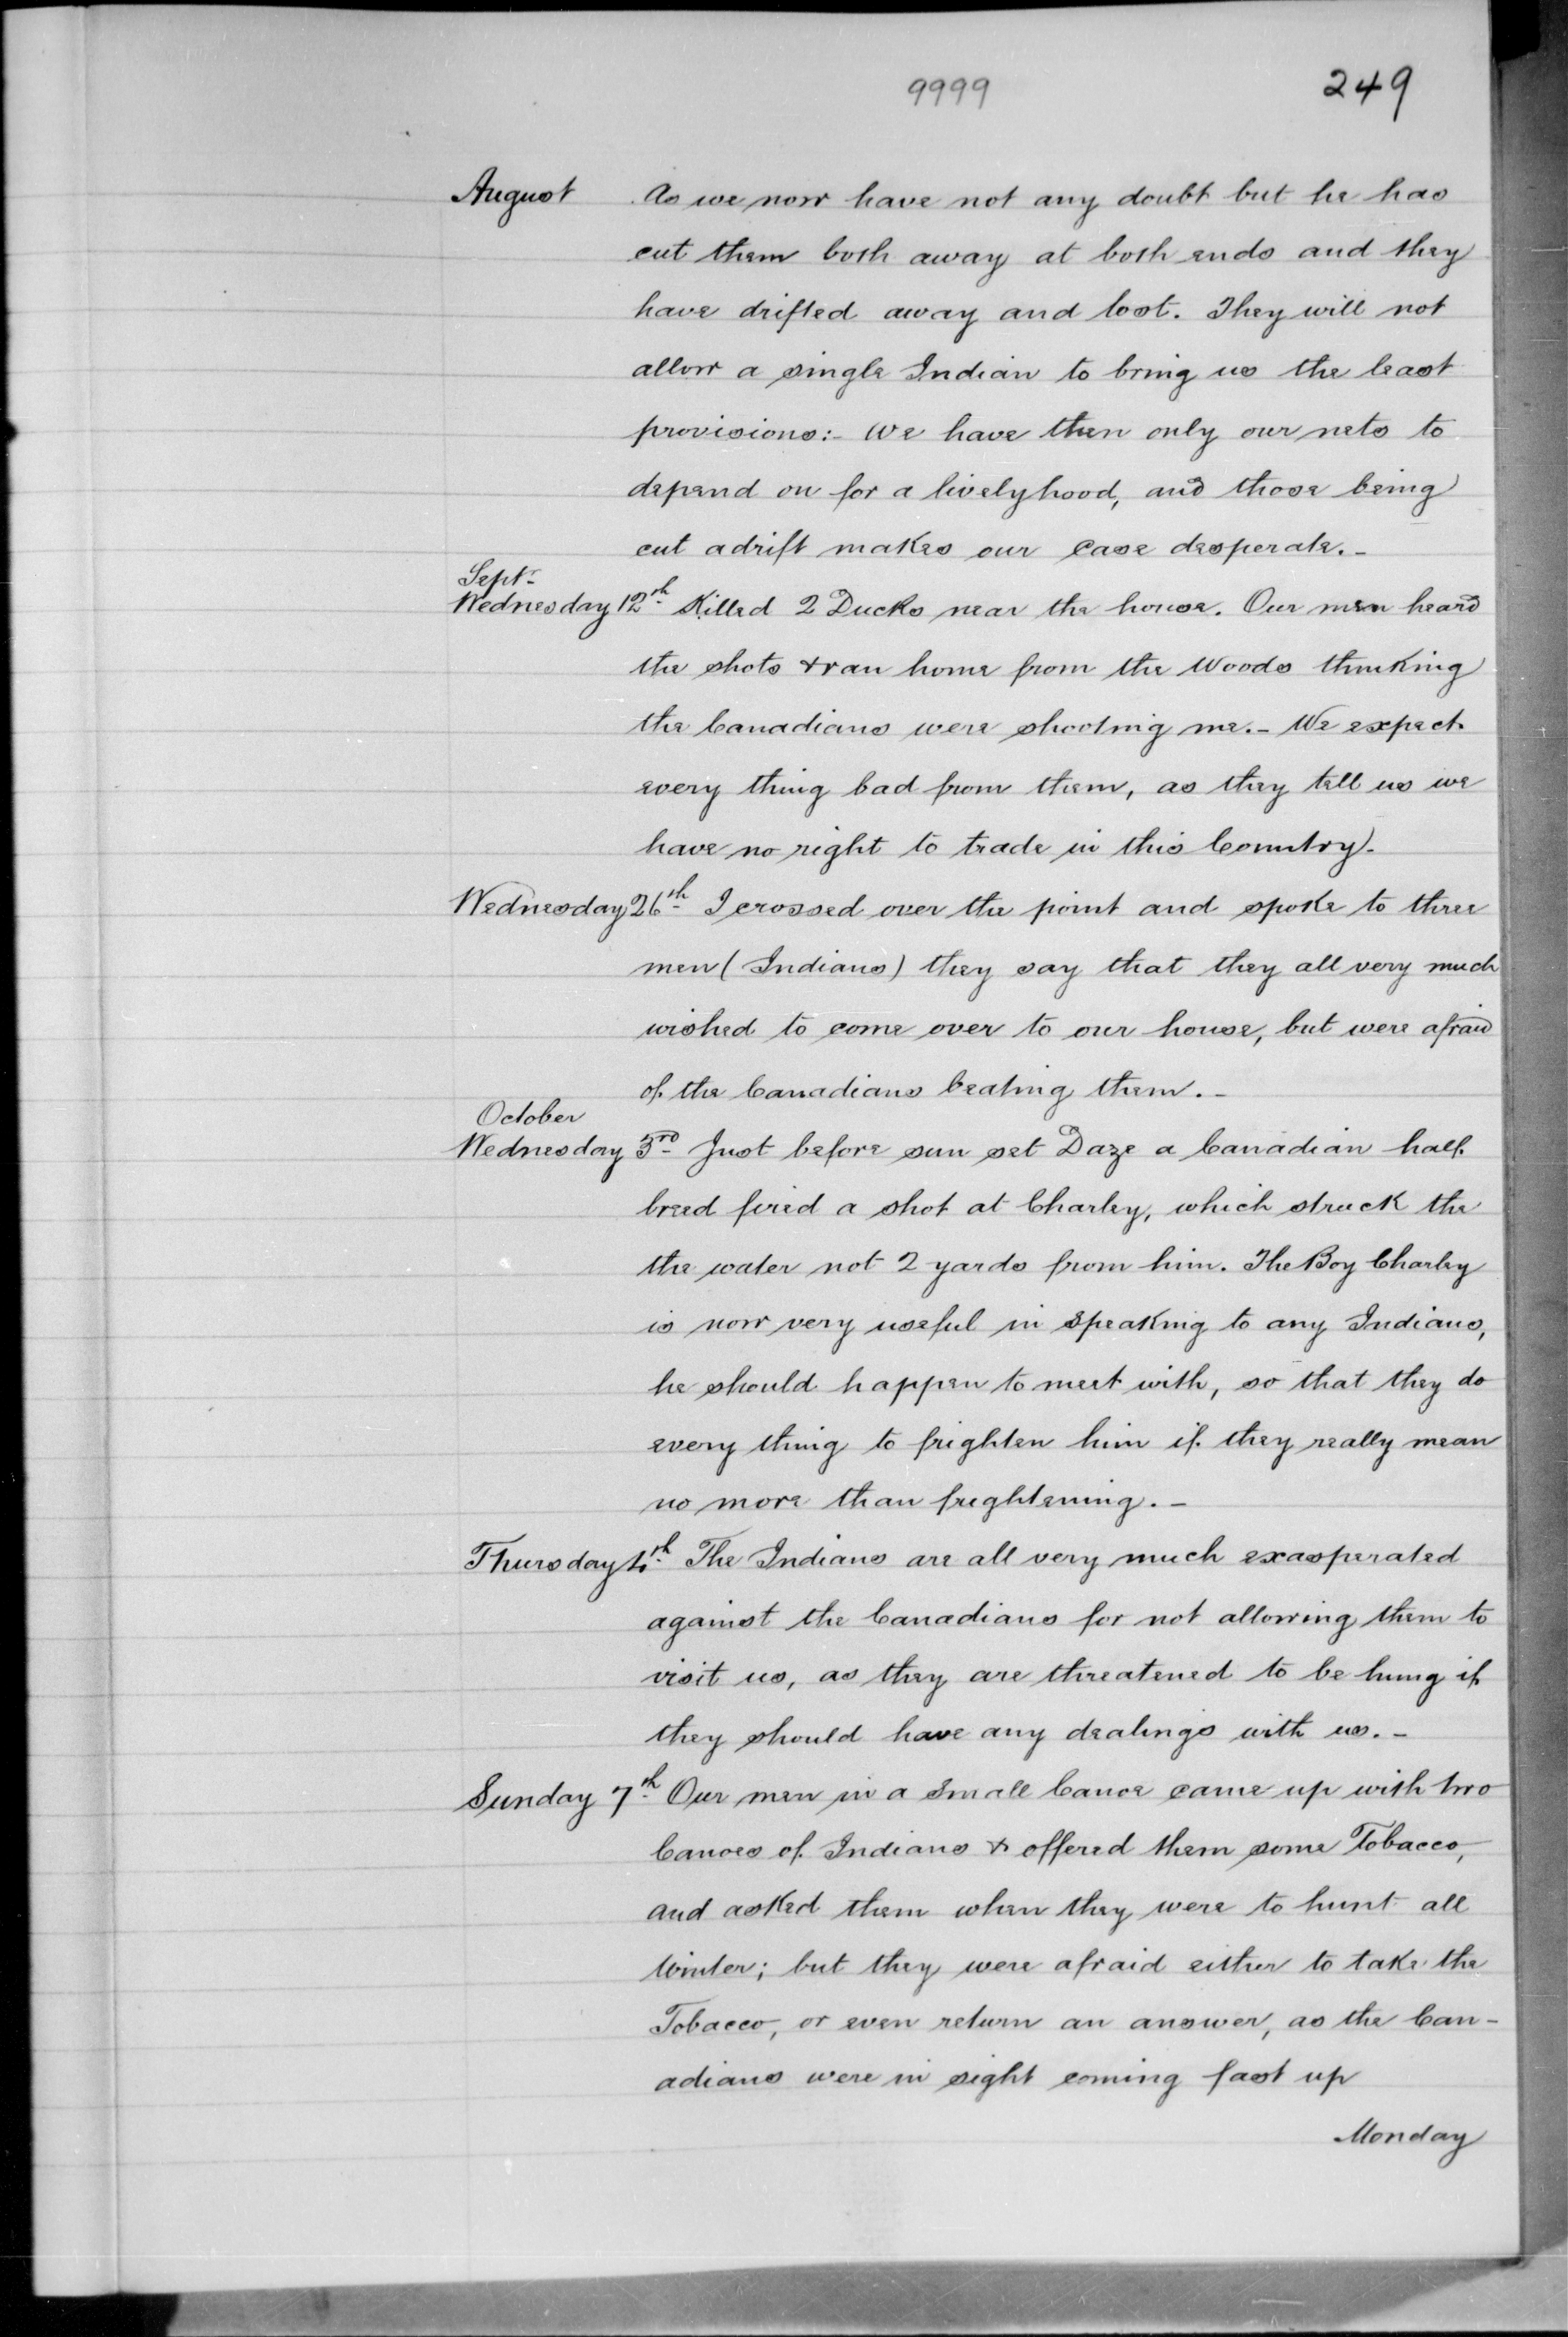 9999 249
August As we now have not any doubt but he has
cut them both away at both ends and they
have drifted away and lost. They will not
allow a single Indian to bring us the least
provisions:- We have then only our nets to
depend on for a livelyhood, and those being
cut adrift makes our case desperate.-
Septr
Wednesday 12th Killed 2 Ducks near the house. Our men heard
the shots & ran home from the Woods thinking
the Canadians were shooting me.- We expect
every thing bad from them, as they tell us we
have no right to trade in this Country.
Wednesday 26th I crossed over the point and spoke to three
men (Indians) they say that they all very much
wished to come over to our house, but were afraid
of the Canadians beating them.-
October
Wednesday 3rd Just before sun set Daze a Canadian half
breed fired a shot at Charley, which struck the
the water not 2 yards from him. The Boy Charley
is now very useful in speaking to any Indians,
he should happen to meet with, so that they do
every thing to frighten him if they really mean
no more than frightening.-
Thursday 4th The Indians are all very much exasperated
against the Canadians for not allowing them to
visit us, as they are threatened to be hung if
they should have any dealings with us.-
Sunday 7th Our men in a small Canoe came up with two
Canoes of Indians & offered them some Tobacco,
and asked them when they were to hunt all
Winter; but they were afraid either to take the
Tobacco, or even return an answer, as the Can-
adians were in sight coming fast up
Monday